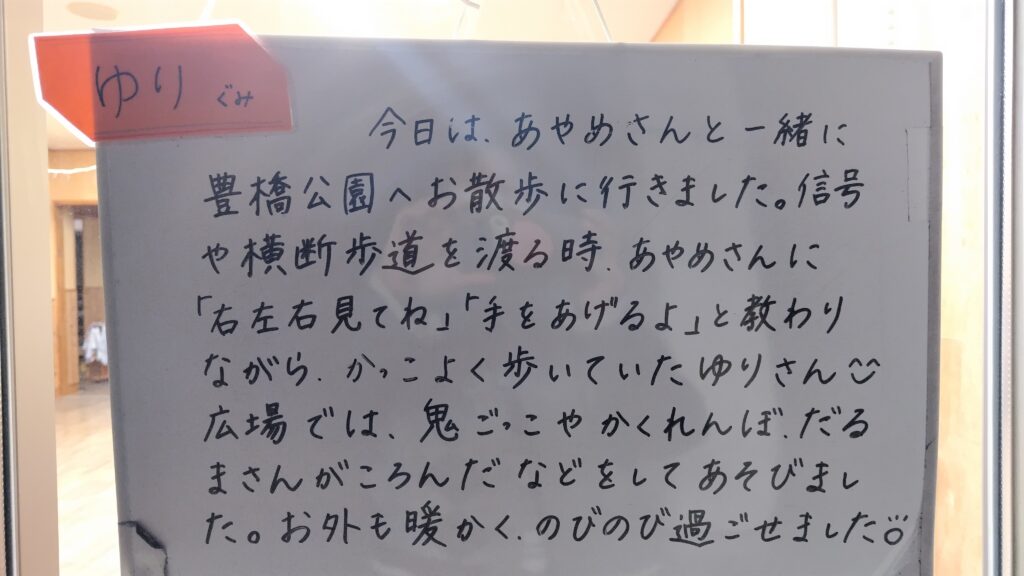 ゆり ぐみ
今日は、あやめさんと一緒に
豊橋公園へお散歩に行きました。信号
や横断歩道を渡る時、あやめさんに
「右左右見てね」「手をあげるよ」と教わり
ながら、かっこよく歩いていたゆりさん
広場では、鬼ごっこやかくれんぼ、だる
まさんがころんだなどをしてあそびまし
た。お外も暖かく、のびのび過ごせました